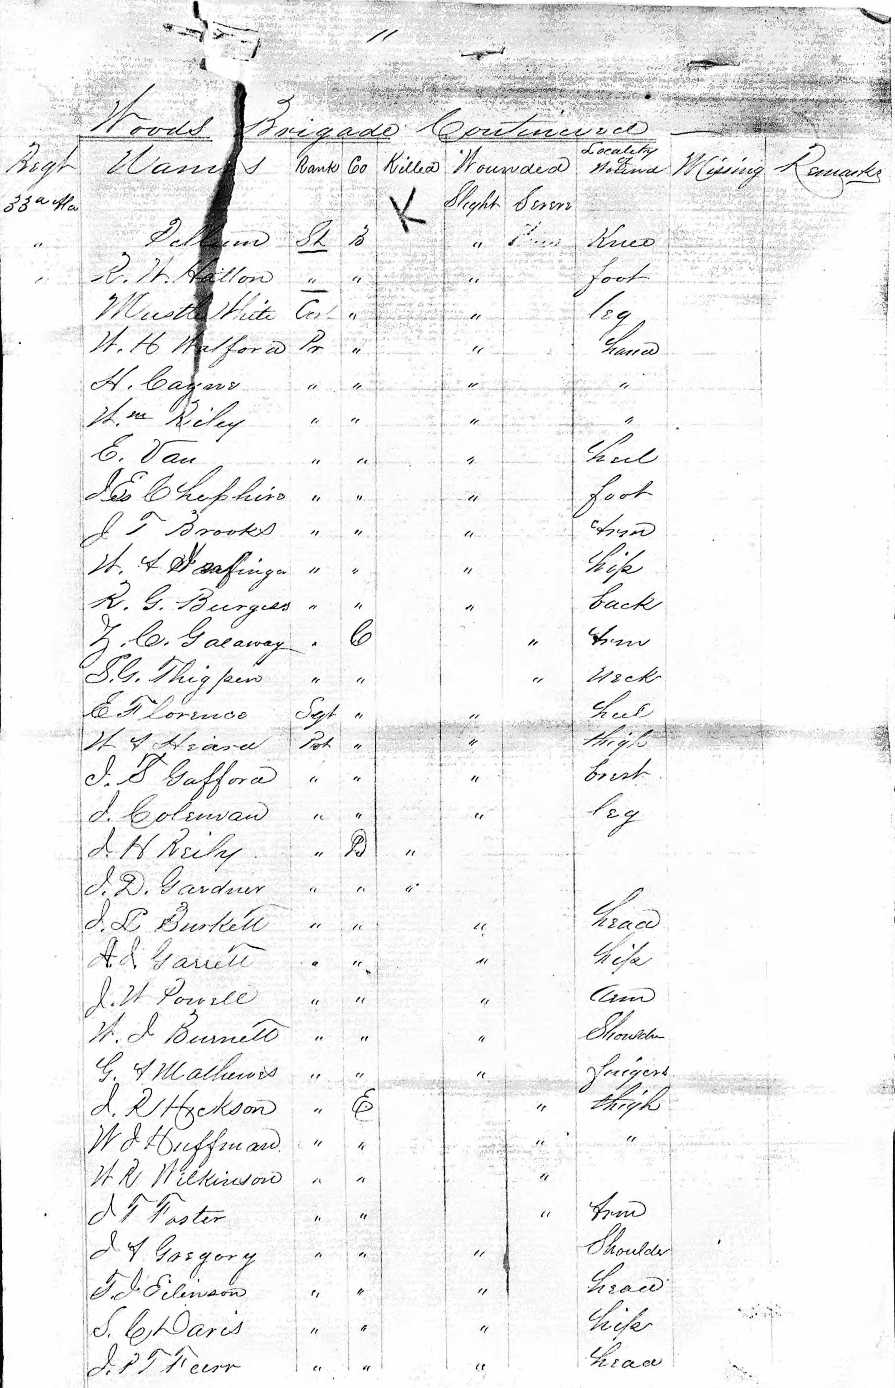 "
Woods Brigade Continued
Regt Names Rank Co Killed Wounded Locality of Wound Missing Remarks
33d Ala K Slight Severe
" Pellum Lt B " Knee
" R. W. Hatton " " " foot
White " " leg
W. H Watford Pr " " hand
H. Cagne " " " "
Wm Riley " " " "
E. Van " " " heel
" " " foot
J T Brooks " " " Arm
W. A " " " hip
R. G. Burgess " " " back
Z. C. Galaway " C " Arm
S. G. Thigpen " " " neck
E Florence Sgt " " heel
W A Heard Prt " " thigh
J. S Gafford " " " brest
J. Coleman " " " leg
J. H Reily " D "
J. D. Gardner " " "
J. L Burkett " " " head
A. J. Garrett " " " hip
J. W Powell " " " arm
W. J Burnett " " " Shoulder
G. A Mathews " " " fingers
J. R Hickson " E " thigh
W J Huffman " " " "
W R Wilkinson " " "
J T Foster " " " Arm
J A Gregory " " " Shoulder
T. J Eilinson " " " head
S. C Davis " " " hip
J. P T Farr " " " head